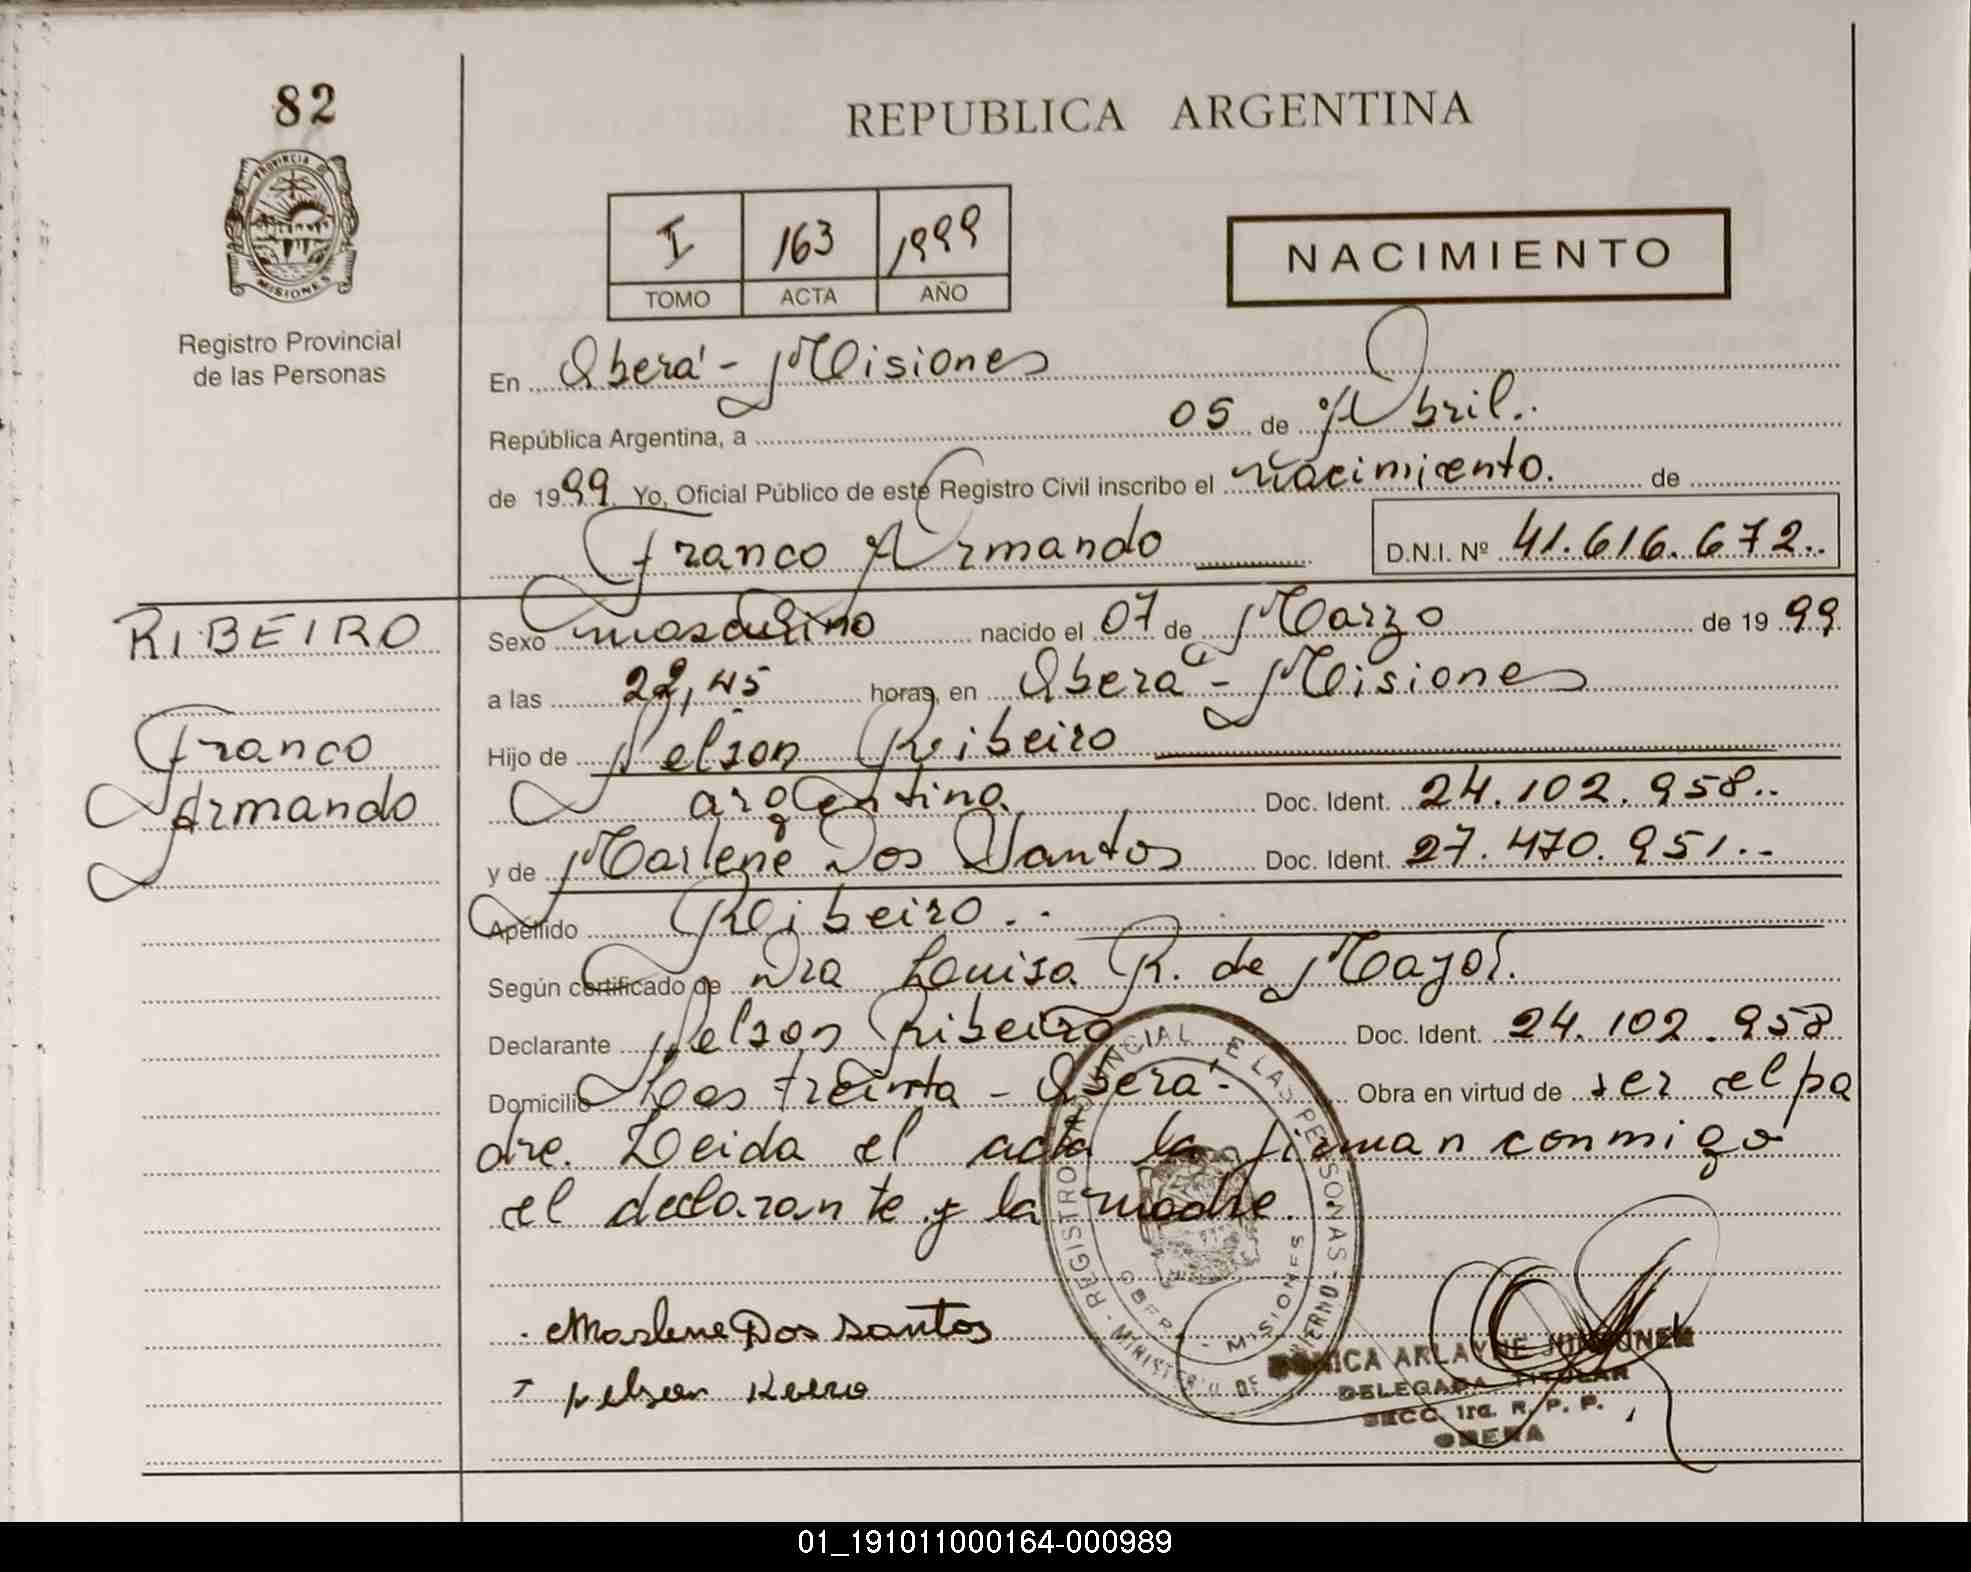 82
REPUBLICA ARGENTINA
PROVINCIA DE
MISIONES
Registro Provincial
de las Personas
I 163 1999
TOMO ACTA AÑO
NACIMIENTO
En Oberá - Misiones
República Argentina, a 05 de Abril.
de 1999 Yo, Oficial Público de este Registro Civil inscribo el nacimiento. de
Franco Armando D.N.I. Nº 41.616.672..
RIBEIRO
Franco
Armando
Sexo masculino nacido el 07 de Marzo de 1999
a las 22,45 horas, en Oberá - Misiones
Hijo de Nelson Ribeiro
argentino Doc. Ident. 24.102.958..
y de Marlene Dos Santos Doc. Ident. 27.470.951..
Apellido Ribeiro..
Según certificado de Dra Louisa R. de Mayol.
Declarante Nelson Ribeiro Doc. Ident. 24.102.958
Domicilio Los treinta - Oberá - Obra en virtud de ser el pa
dre. Leida el acta la firman conmigo
el declarante y la madre.
REGISTRO PROVINCIAL DE LAS PERSONAS - MINISTERIO DE GOBIERNO
OBERA - MISIONES
Marlene Dos santos
nelson
ARLAYNE
DELEGADA TITULAR
SECC. 1ra. R. P. P.
OBERA
01_191011000164-000989